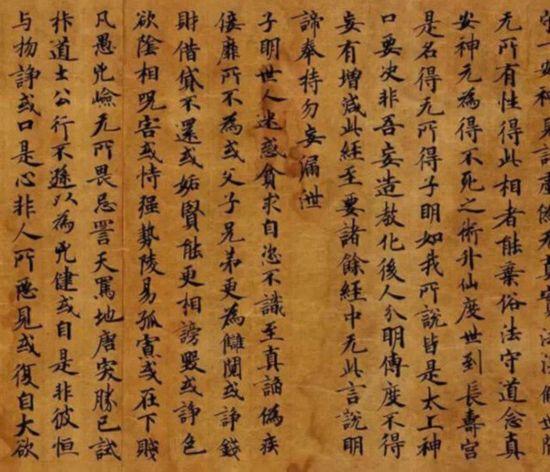 无所有性得此相者能棄俗法守道念真
安神无為得不死之術升仙度世到長壽宮
是名得无所得子明如我所說皆是太上神
口要决非吾妄造教化後人分明傳度不得
妄有增減此經至要諸餘經中无此言說明
諦奉持勿妄漏泄
子明世人迷惑貪求自恣不識至真諂偽疾
倿靡所不為或父子兄弟更為讎闘或諍錢
財借貸不還或妬賢能更相謗毀或諍色
欲陰相呪害或恃强勢陵易孤寡或在下賤
凡愚兇嶮无所畏忌詈天罵地唐突勝己試
道士公行不遜以為兇健或自是非彼恒
与物諍或口是心非人所惡見或復自大欲